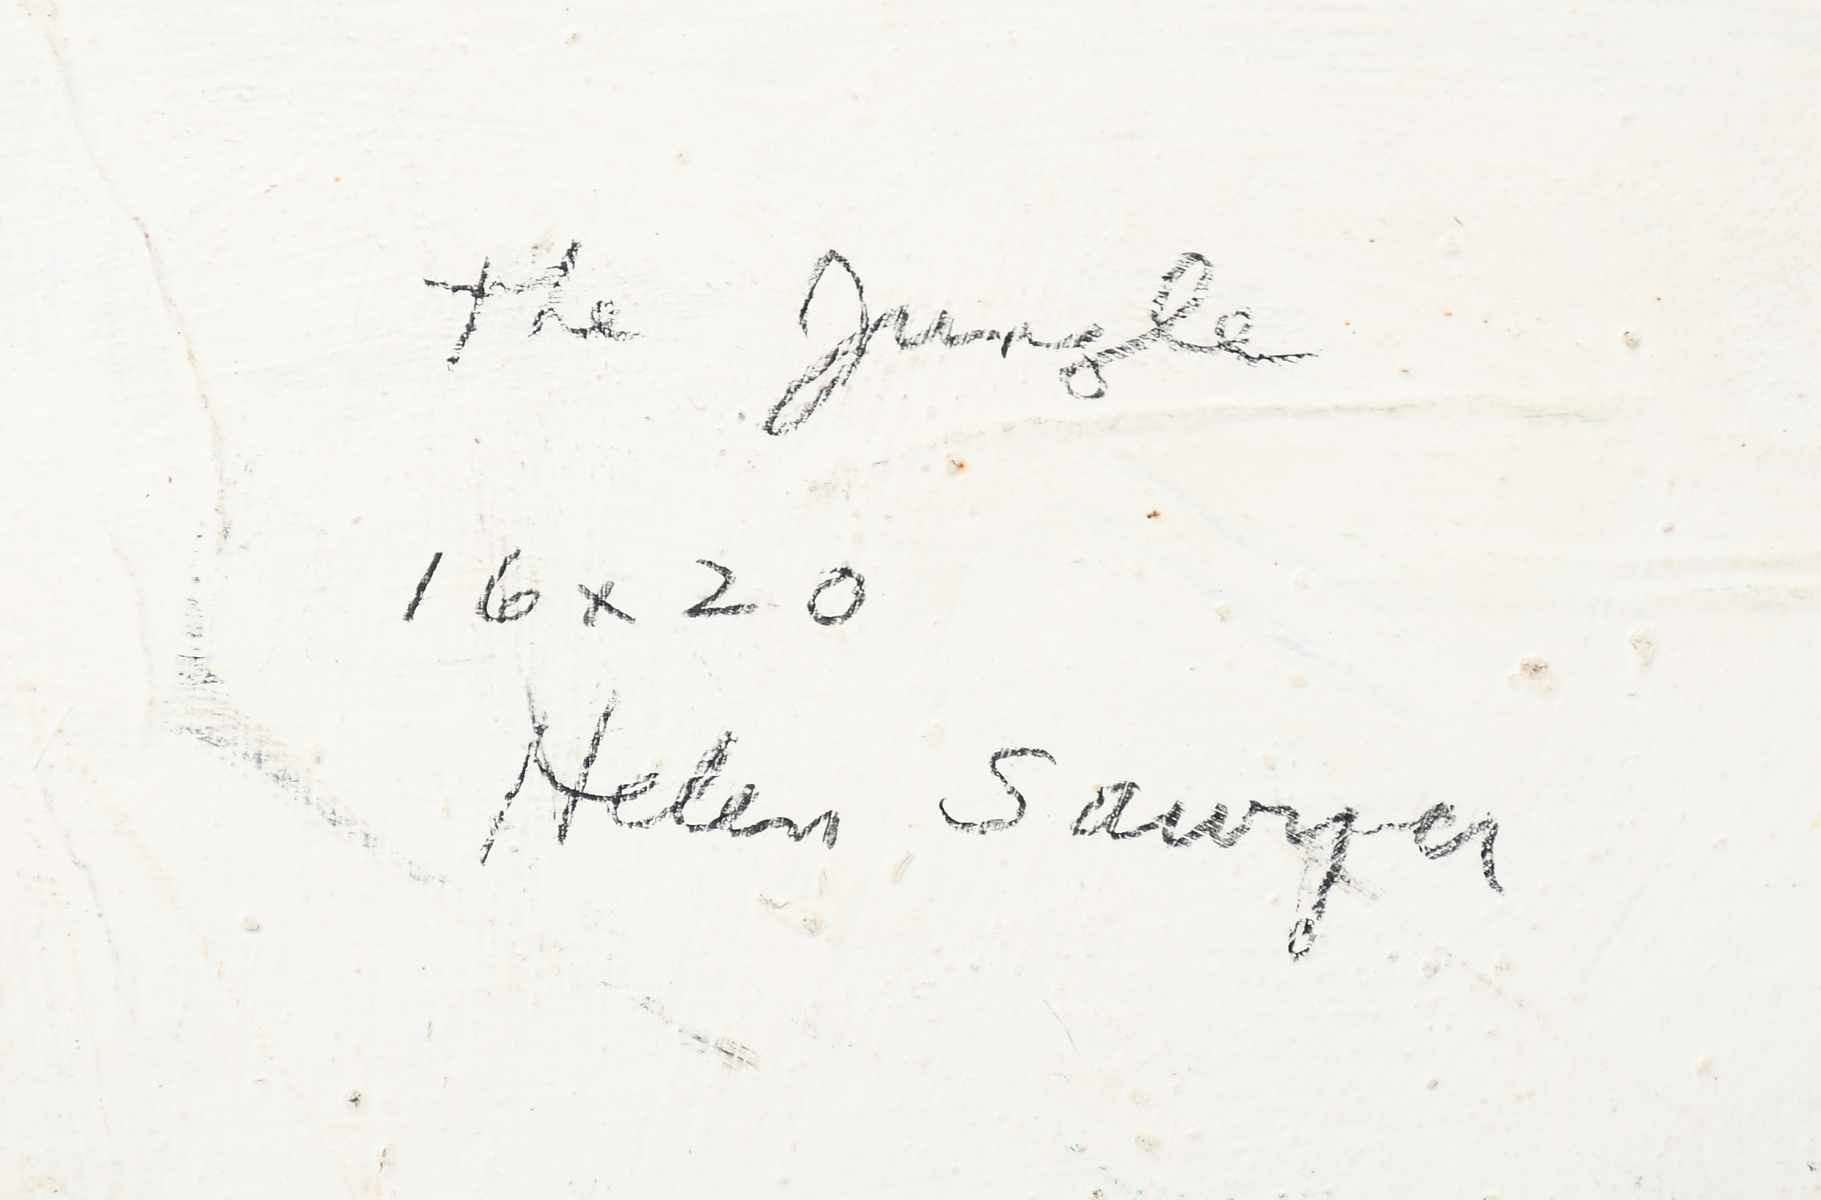 the Jungle
16x20
Helen Sawyer